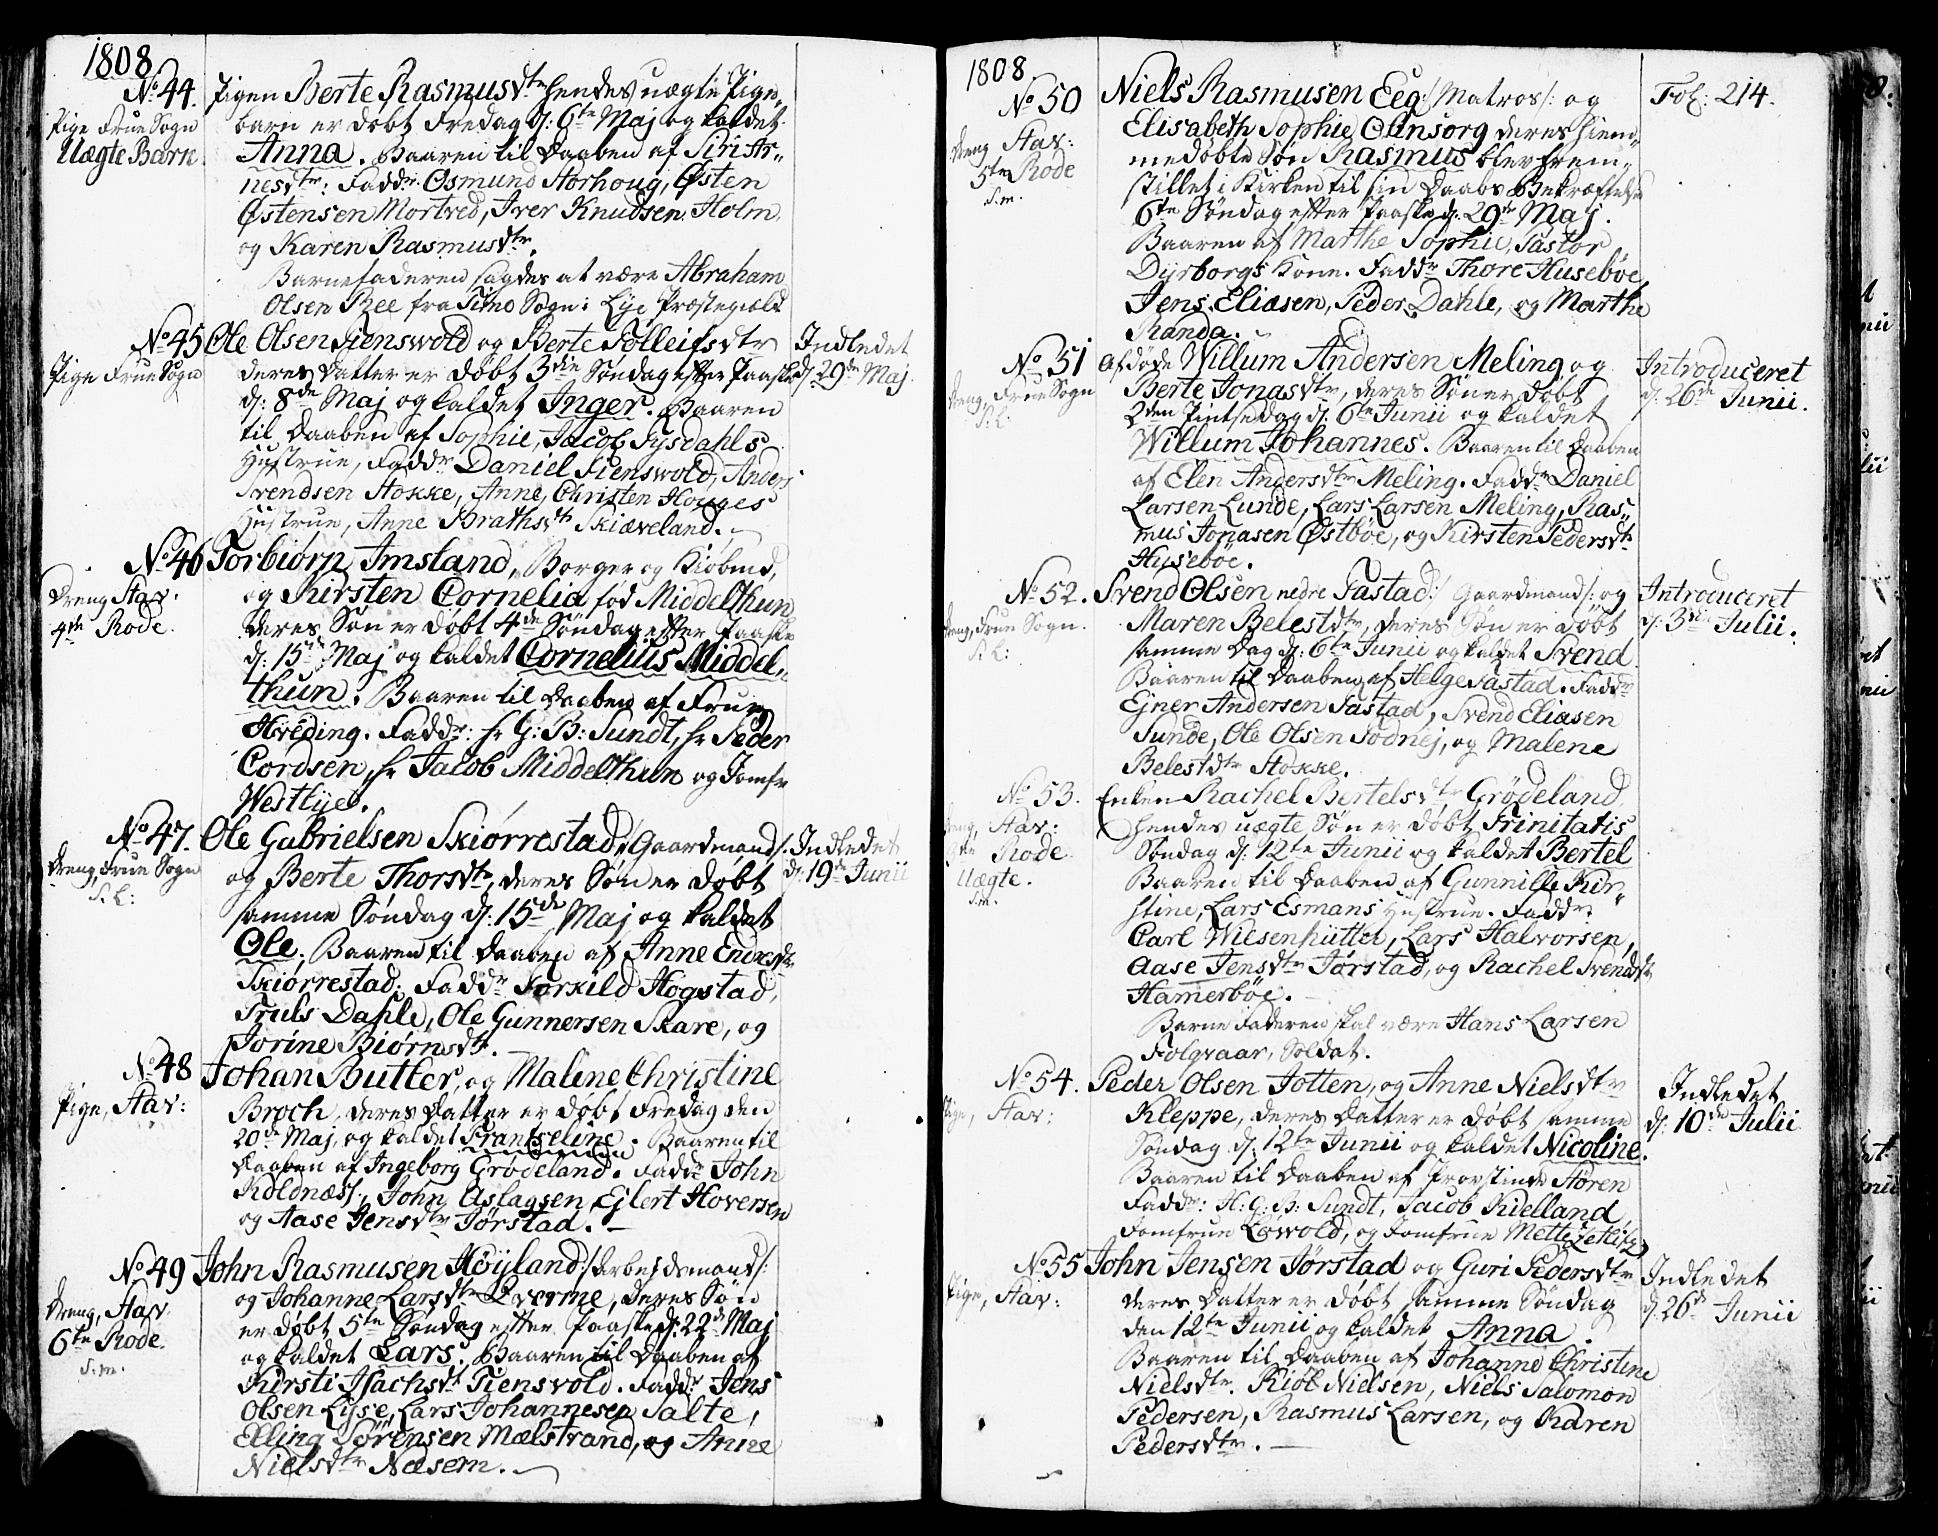 1808
No 44. Pigen Berte Rasmusdtr hendes uægte Pige-
Pige Frue Sogn
Uægte Barn
barn er döbt Fredag d: 6te Maj og kaldet
Anna. Baaren til Daaben af Siri Ar-
nesdtr: Faddr. Osmund Storhoug, Østen
Østensen Mortved, Iver Knudsen Holm
og Karen Rasmusdtr.
Barnefaderen sagdes at være Abraham
Olsen Bee fra Time Sogn: Lye Præstegield
No 45 Ole Olsen Tiensvold og Berte Tolleifsdtr
Pige Frue Sogn
deres Datter er döbt 3die Söndag efter Paaske
d: 8de Maj og kaldet Inger. Baaren
til Daaben af Sophie, Jacob Sysdahls
Hustrue, Faddr Daniel Tiensvold, Anders
Svendsen Stokke, Anne, Christen Houges
Hustrue, Anne Brathsdtr Skiæveland.
Indledet
d: 29de Maj
No 46 Torbiørn Imsland, Borger og Kiøbmd,
Dreng Stav:
4de Rode.
og Kirsten Cornelia fød Middelthun
deres Søn er döbt 4de Söndag efter Paaske
d: 15de Maj og kaldet Cornelius Middel-
thun. Baaren til Daaben af Frue
Hveding. Faddr: hr G: B: Sundt, hr Peder
Cordsen, hr Jacob Middelthun og Jomfr
Westlye.
No 47. Ole Gabrielsen Skiørrestad /: Gaardmand :/
Dreng, Frue Sogn
S. L:
og Berte Thorsdtr, deres Søn er döbt
samme Söndag d: 15de Maj og kaldet
Ole, Baaren til Daaben af Anne Endresdtr
Skiørrestad: Faddr Torkild Hogstad,
Truls Dahle, Ole Gunnersen Skare, og
Jorine Biørnsdtr.
Indledet
d: 19de Junii
No 48 Johan Butter, og Malene Christine
Pige, Stav:
Broch, deres Datter er döbt Fredag den
20de Maj, og kaldet Frantseline. Baaren til
Daaben af Ingeborg Grödeland. Faddr John
Koldnæs, John Aslagsen, Ejlert Hoversen
og Aase Jensdtr Jørstad.
No 49 John Rasmusen Höyland /: Arbejdsmand :/
Dreng, Stav.
6te Rode.
S. m.
og Johanne Larsdtr Qværme, deres Søn
er döbt 5te Söndag efter Paaske d: 22de Maj
og kaldet Lars. Baaren til Daaben af
Kirsti Isachsdtr Tiensvold. Faddr: Jens
Olsen Lyse, Lars Johannesen Salte,
Elling Sörensen Mælstrand, og Anne
Nielsdtr Næsem.
1808
No 50 Niels Rasmusen Eeg /: Matros :/ og
Dreng Stav:
5te Rode
S. m.
Elisabeth Sophie Olinsorg deres hiem-
medöbte Søn Rasmus blev frem-
stillet i Kirken til sin Daabs Bekræftelse
6te Söndag efter Paaske d: 29de Maj.
Baaren af Marthe Sophie, Pastor
Dyrborgs Kone. Faddr Thore Huseböe
Jens Eliasen, Peder Dahle, og Marthe
Randa.
Fol: 214.
No 51 Afdöde Willum Andersen Meling og
Dreng, Frue Sogn
S: L:
Berte Jonasdtr, deres Søn er döbt
2den Pintsedag d: 6te Junii og kaldet
Willum Johannes. Baaren til Daaben
af Elen Andersdtr Meling. Faddr Daniel
Larsen Lunde, Lars Larsen Meling, Ras-
mus Jonasen Østböe, og Kirsten Pedersdtr
Huseböe.
Introduceret
d: 26de Junii.
No 52. Svend Olsen nedre Tastad /: Gaardmand :/ og
Dreng, Frue Sogn.
S: L:
Maren Belestdtr, deres Søn er döbt
samme Dag d: 6te Junii og kaldet Svend
Baaren til Daaben af Helge Tastad. Faddr
Ejner Andersen Tastad, Svend Eliasen
Sunde, Ole Olsen Todnej, og Malene
Belestdtr Stokke.
Introduceret
d: 3die Julii.
No 53. Enken Rachel Bertelsdtr Grödeland,
Stav:
Rode
Uægte.
S. m.
hendes uægte Søn er döbt Trinitatis
Söndag d: 12te Junii og kaldet Bertel
Baaren til Daaben af Gunnille Kir-
stine, Lars Esmans Hustrue. Faddr:
Carl Wiesenhütter, Lars Halvorsen,
Aase Jensdtr Jørstad, og Rachel Svendsdtr
Hamerböe.
Barne Faderen skal være Hans Larsen
Folgvaar, Soldat.
No 54. Peder Olsen Jotten, og Anne Nielsdtr
Pige, Stav:
Kleppe, deres Datter er döbt samme
Söndag d: 12te Junii og kaldet Nicoline.
Baaren til Daaben af Provstinde Støren
Faddr: H: G: B: Sundt, Jacob Kielland
Jomfrue Löwold, og Jomfrue Mette Zetlitz
Indledet
d: 10de Julii
No 55 John Jensen Jørstad og Guri Pedersdtr
Pige, Stav:
deres Datter er döbt samme Söndag
den 12te Junii og kaldet Anna.
Baaren til Daaben af Johanne Christine
Nielsdtr. Kiöl Nielsen, Niels Salomon
Pedersen, Rasmus Larsen, og Karen
Pedersdtr.
Indledet
d: 26de Junii